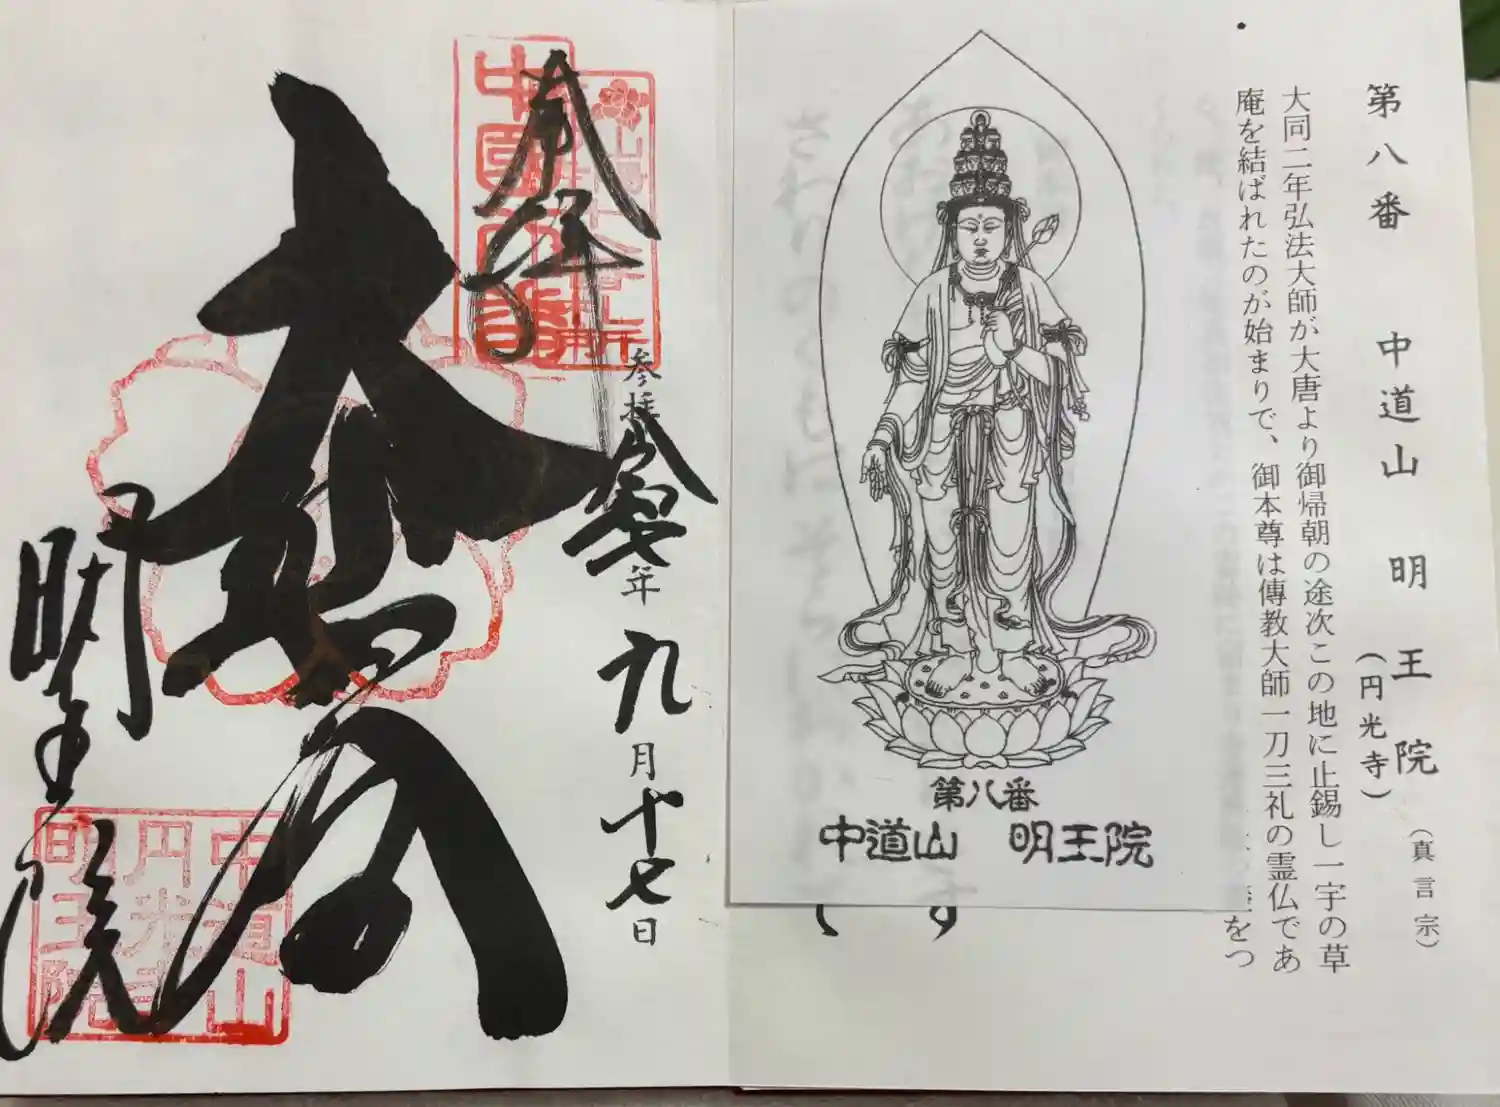 第八番 中道山 明王院
(円光寺)
(真言宗)
大同二年弘法大師が大唐より御帰朝の途次この地に止錫し一宇の草
庵を結ばれたのが始まりで、御本尊は傳教大師一刀三礼の霊仏であ
をつ
第八番
中道山 明王院
奉拝
参拝 年九月十七日
大悲閣
明王院
中道山
円光寺
明王院